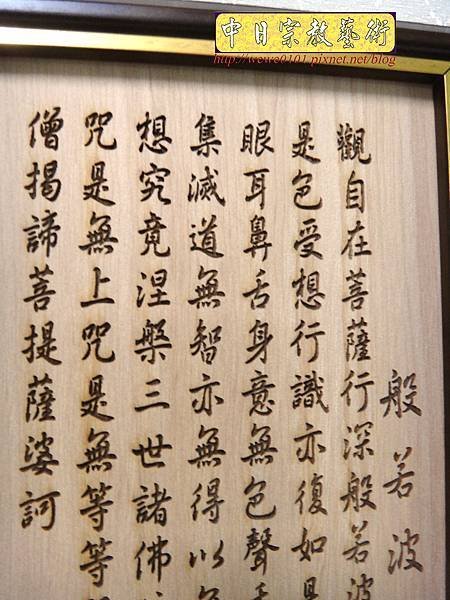 中日宗教藝術
http://weare0101.pixnet.net/blog
般若波
觀自在菩薩行深般若波
是色受想行識亦復如是
眼耳鼻舌身意無色聲香
集滅道無智亦無得以無
想究竟涅槃三世諸佛
咒是無上咒是無等等
僧揭諦菩提薩婆訶